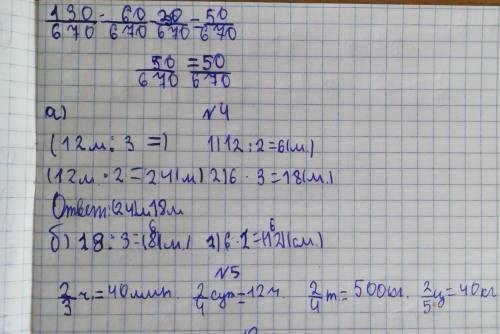 130/670 - 60/670 - 20/670 = 50/670
50/670 = 50/670
а) №4
(12м : 3 =) 1) 12 : 2 = 6(м.)
(12м · 2 = 24(м) 2) 6 · 3 = 18(м.)
Ответ: (24)м 18м
б) 18 : 3 = 6(м.) 2) 6 · 2 = 12(см.)
№5
2/3 ч. = 40 мин. 2/4 сут = 12ч. 2/4 т = 500кг. 2/5 ц = 40кг